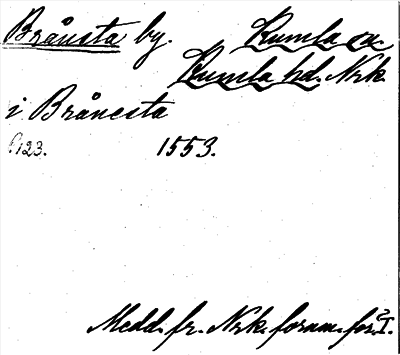 Brånsta by. Kumla sn.
Kumla hd. Nrk.
i Brånesta
123. 1553.
Medd. fr. Nrk. fornm.för. I.